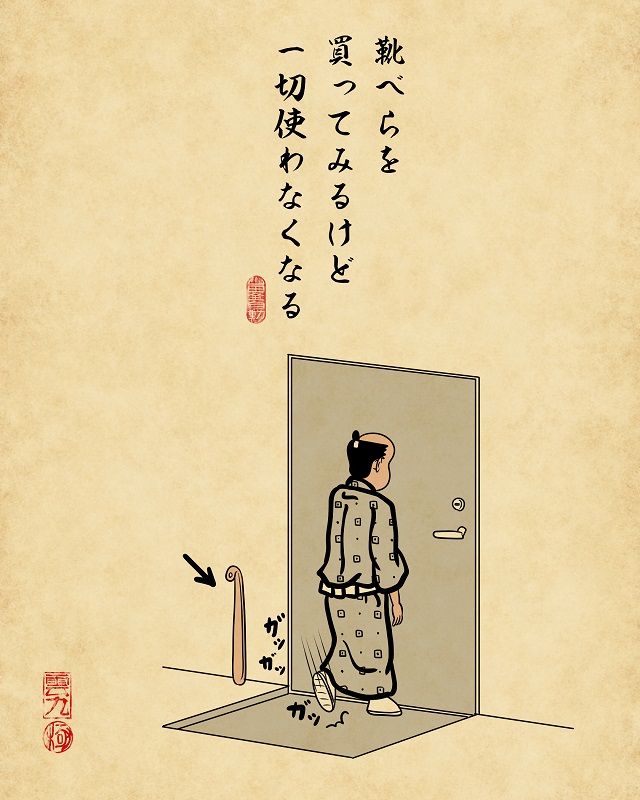 靴べらを
買ってみるけど
一切使わなくなる
ガッ
ガッ
ガッ